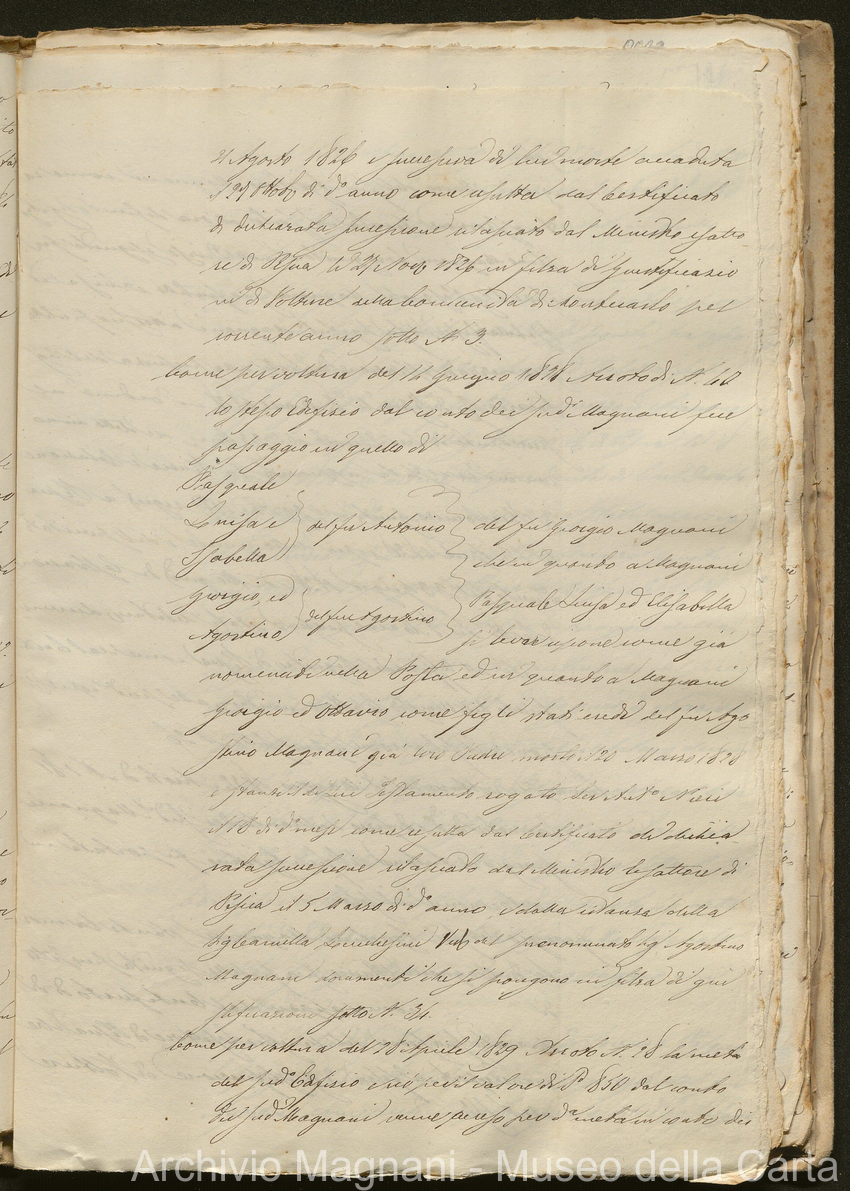 21 Agosto 1826 e successiva di lui morte accaduta
il 27 Ottobe di do anno come resulta dal Certificato
di dichiarata successione rilasciato dal Ministro esatto
re di Pescia li 27 Nove 1826 in filza di Giustificazio
ni di Volture della Comunità di Montecarlo pel
corrente anno sotto No 3.
Come per voltura del 14 Giugno 1828 Arroto di N. 40
lo stesso Edifizio dal conto dei sudi Magnani fece
passaggio in quello di
Pasquale
Luisa e
Isabella
del fu Antonio
Giorgio, ed
Agostino
del fu Agostino
del fu Giorgio Magnani
che in quanto a Magnani
Pasquale Luisa ed Elisabella
si come già
nella Posta ed in quanto a Magnani
Giorgio ed Ottavio come figli stati eredi del fu Ago
stino Magnani già loro Padre morto il 20 Marzo 1828
e stante il di lui Testamento rogato Ser Anto Nieri
il 18 di do mese come resulta dal Certificato di dichia-
rata successione rilasciato dal Ministro Esattore di
Pescia il 5 Marzo di do anno, e dalla istanza della
Sig Camilla Lucchesini Vedva del prenominato Sig Agostino
Magnani documenti che si pongono in filza di giu
stificazioni sotto N. 34.
Come per voltura del 28 Aprile 1829 Arroto N. 28 la metà
del sudo Edifizio e ciò per il valore di 850 dal conto
dei sudi Magnani venne acceso per da metà in conto dei
Archivio Magnani - Museo della Carta